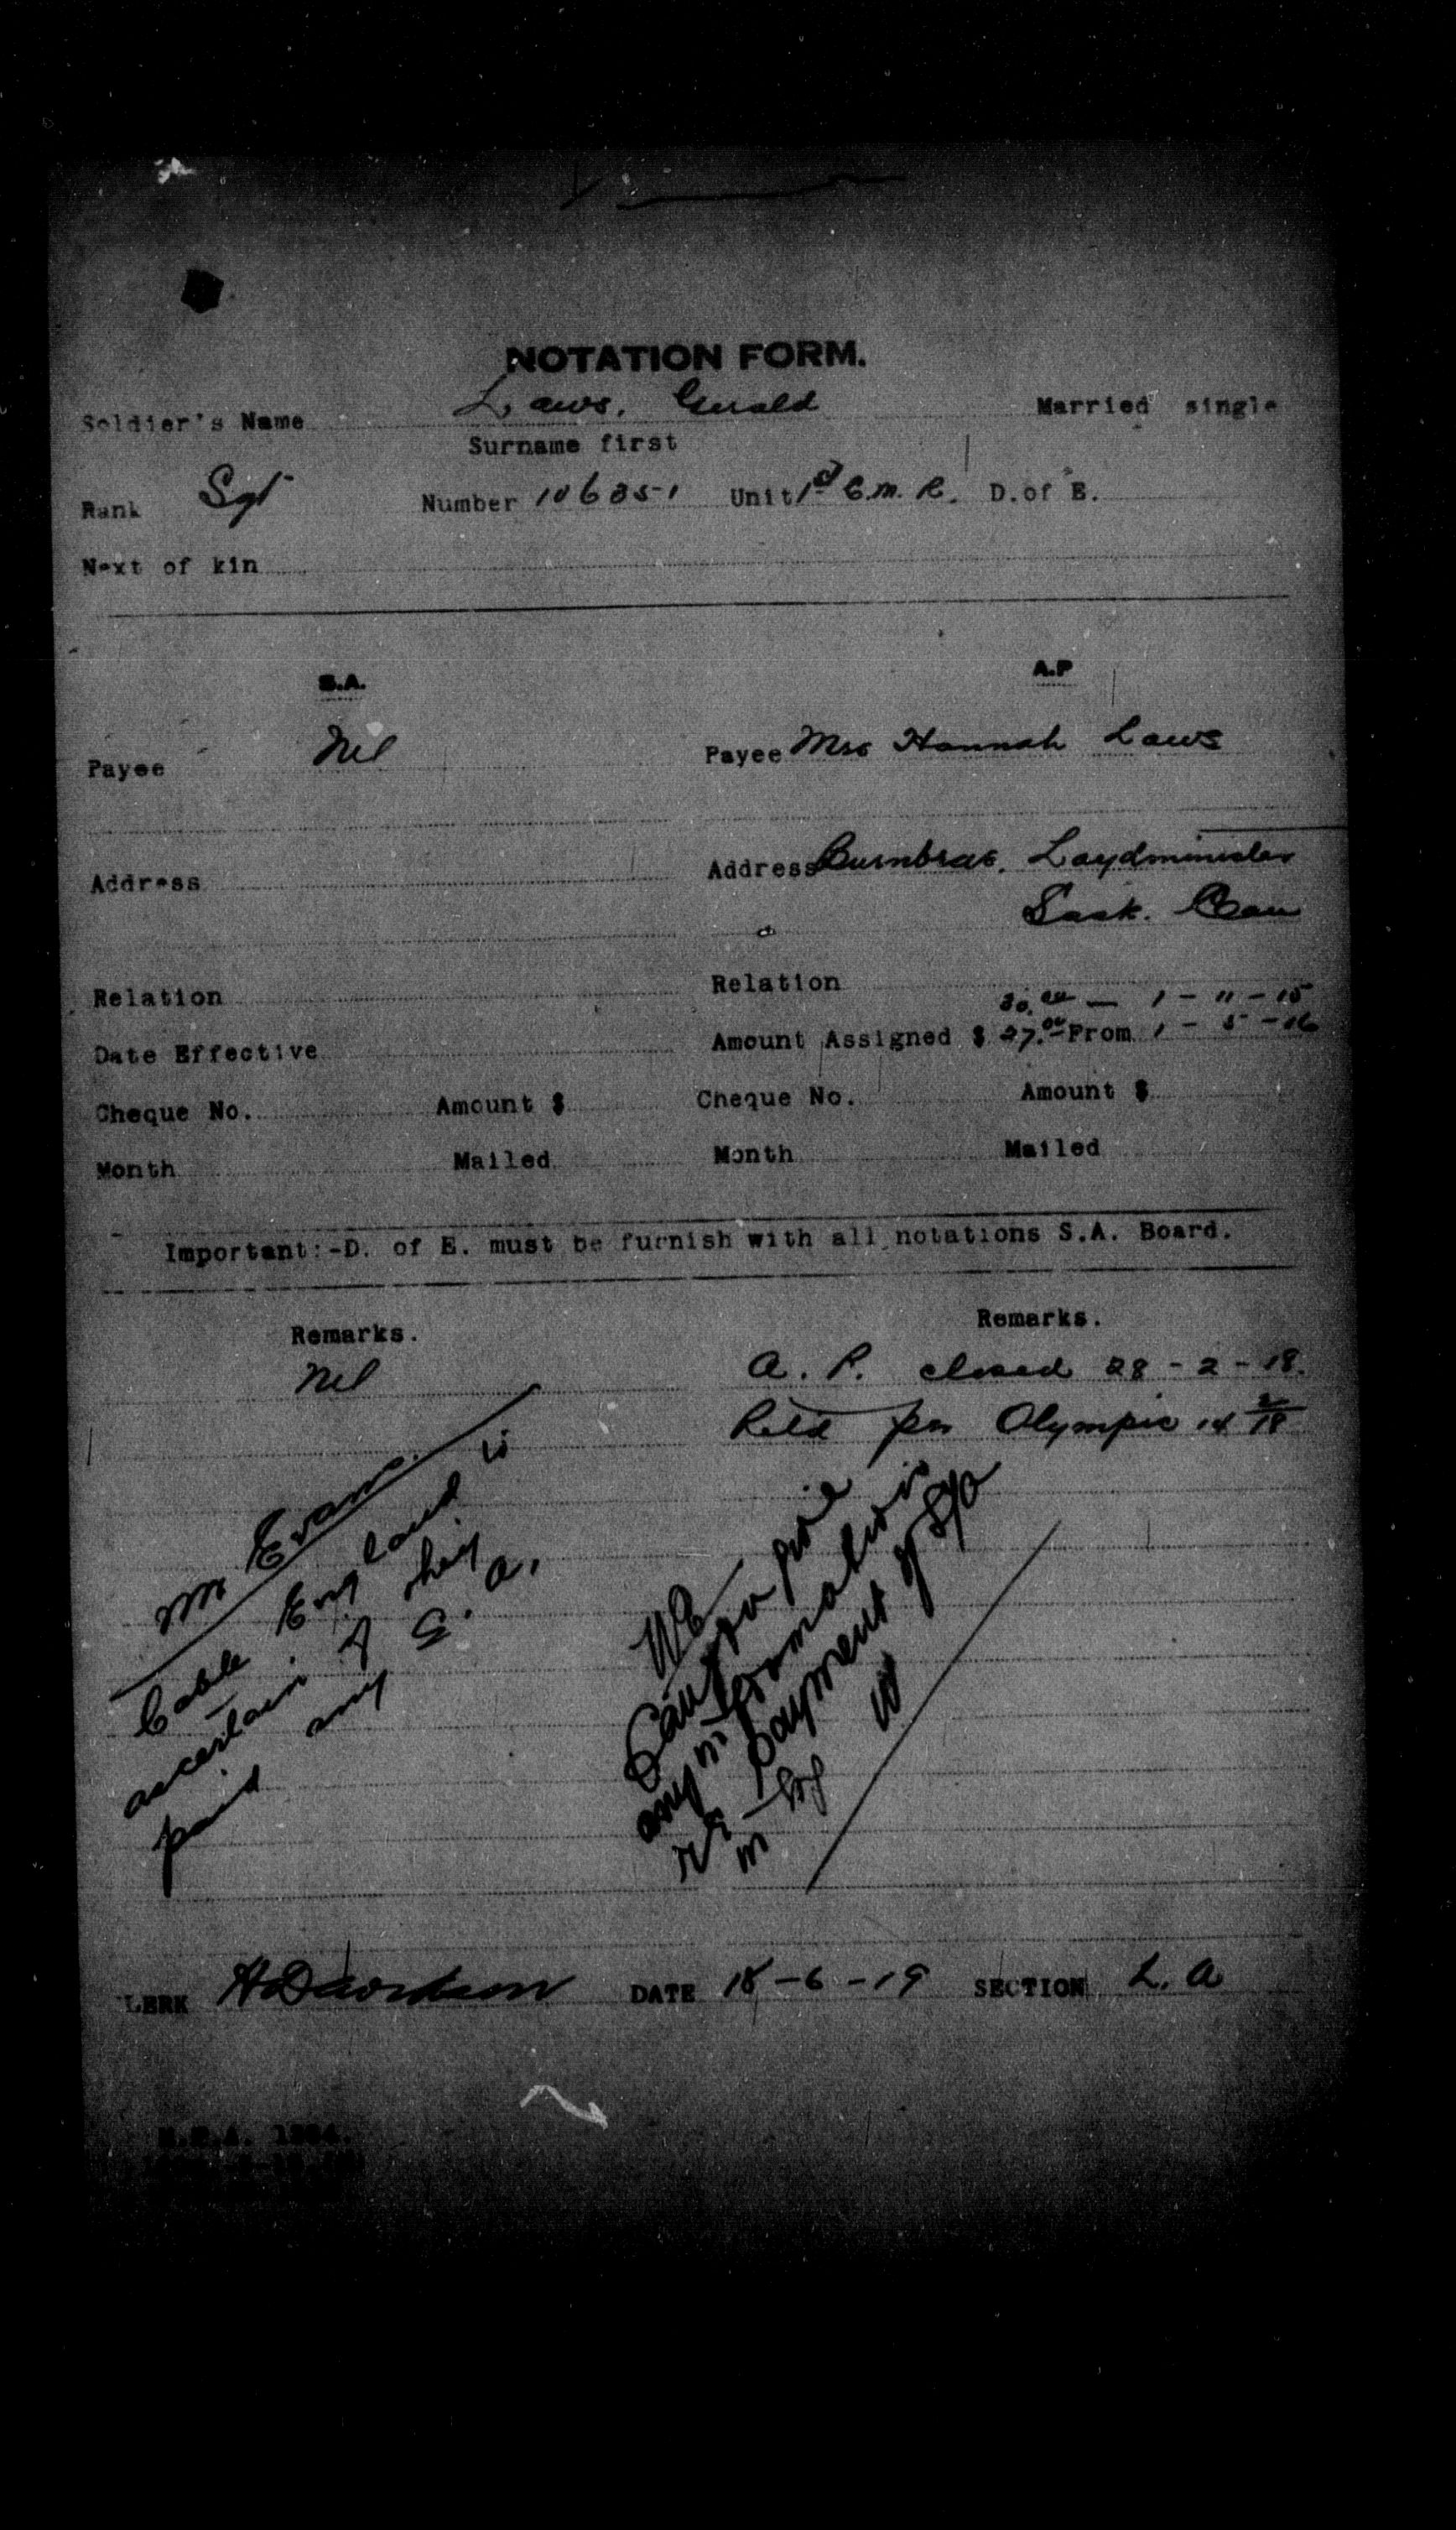 NOTATION FORM.
Soldier's Name Laws, Gerald Married single
Surname first
Rank Sgt Number 106351 Unit 1st C.M.R. D.of E.
Next of kin
S.A. A.P
Payee Nil Payee Mrs Hannah Laws
Address Address Burnbrae, Loydminister
Sask. Can
Relation Relation
30.00 — 1 - 11 - 15
Date Effective Amount Assigned $ 27.00 From 1 - 5 - 16
Cheque No. Amount $ Cheque No. Amount $
Month Mailed Month Mailed
Important:-D. of E. must be furnish with all notations S.A. Board.
Remarks. Remarks.
Nil A. P. closed 28 - 2 - 18.
Retd per Olympic 14 2/18
Mr Evans.
Cable England to
ascertain if they
paid any S. A.
Can you give
any information
re payment of S/A
in
CLERK H Davidson DATE 18 - 6 - 19 SECTION L. A